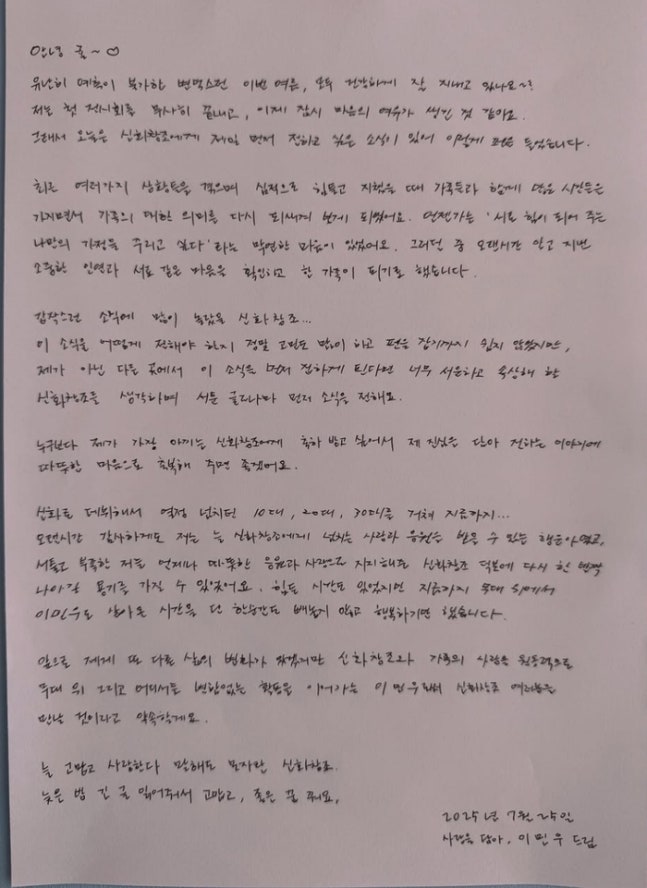 안녕 귤~♡
유난히 예측이 불가한 변덕스런 이번 여름, 모두 건강하게 잘 지내고 있나요~?
저는 첫 전시회를 무사히 끝내고, 이제 잠시 마음의 여유가 생긴 것 같아요.
그래서 오늘은 신화창조에게 제일 먼저 전하고 싶은 소식이 있어 이렇게 펜을 들었습니다.
최근 여러가지 상황들을 겪으며 심적으로 힘들고 지쳤을 때 가족들과 함께 많은 시간들은
가지면서 가족의 대한 의미를 다시 되새겨 보게 되었어요. 언젠가는 '서로 힘이 되어 주는
나만의 가정을 꾸리고 싶다'라는 막연한 마음이 있었어요. 그러던 중 오랜시간 알고 지낸
소중한 인연과 서로 같은 마음을 확인하고 한 가족이 되기로 했습니다.
갑작스런 소식에 많이 놀랐을 신화창조...
이 소식을 어떻게 전해야 하지 정말 고민도 많이 하고 펜을 잡기까지 쉽지 않았지만,
제가 아닌 다른 곳에서 이 소식을 먼저 접하게 된다면 너무 서운하고 속상해 할
신화창조를 생각하며 서툰 글로나마 먼저 소식을 전해요.
누구보다 제가 가장 아끼는 신화창조에게 축하 받고 싶어서 제 진심을 담아 전하는 이야기에
따뜻한 마음으로 축복해 주면 좋겠어요.
신화로 데뷔해서 열정 넘치던 10대, 20대, 30대를 거쳐 지금까지...
오랜시간 감사하게도 저는 늘 신화창조에게 넘치는 사랑과 응원을 받을 수 있는 행운아였고,
서툴고 부족한 저를 언제나 따뜻한 응원과 사랑으로 지지해준 신화창조 덕분에 다시 한 발짝
나아갈 용기를 가질 수 있었어요. 힘든 시간도 있었지만 지금까지 무대 위에서
이민우로 살아온 시간을 단 한순간도 빼놓지 않고 행복하기만 했습니다.
앞으로 제게 또 다른 삶의 변화가 생겼지만 신화창조와 가족의 사랑을 원동력으로
무대 위 그리고 어디서든 변함없는 활동을 이어가는 이민우로서 신화창조 여러분을
만날 것이라고 약속할게요.
늘 고맙고 사랑한다 말해도 모자란 신화창조.
늦은 밤 긴 글 읽어줘서 고맙고, 좋은 꿈 꿔요.
2025년 7월 25일
사랑을 담아, 이민우 드림